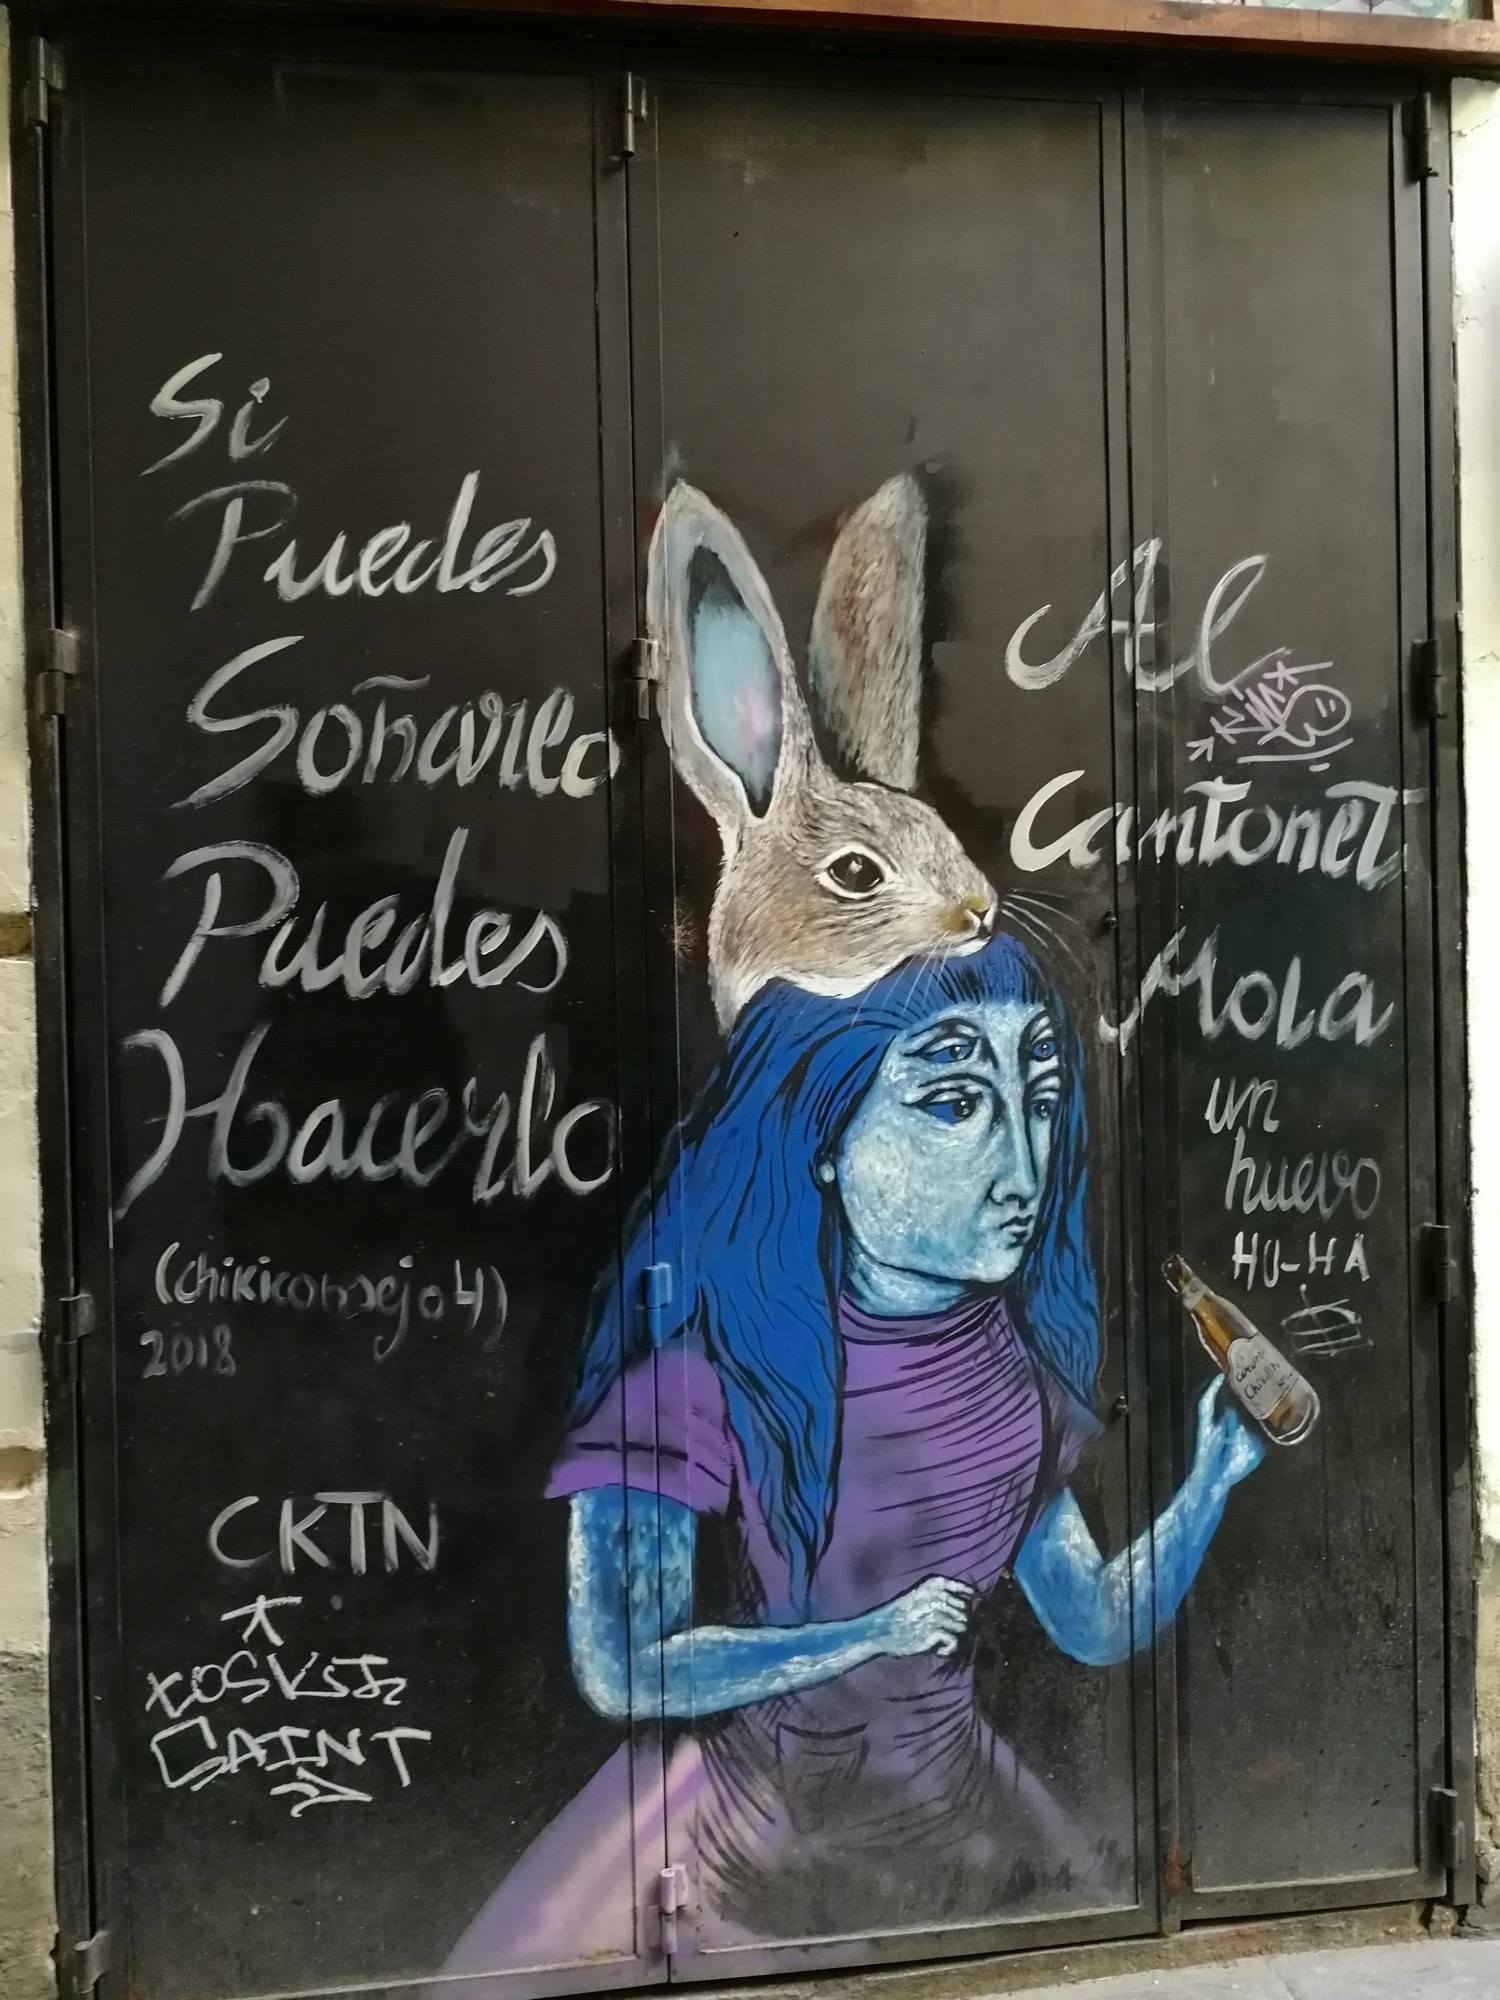 Si
Puedes
Soñarlo
Puedes
Hacerlo
(chikiconsejo4)
2018
CKTN
Al
Cantonet
Mola
un
huevo
HU-HA
Cerveza
Chikitin
SAINT